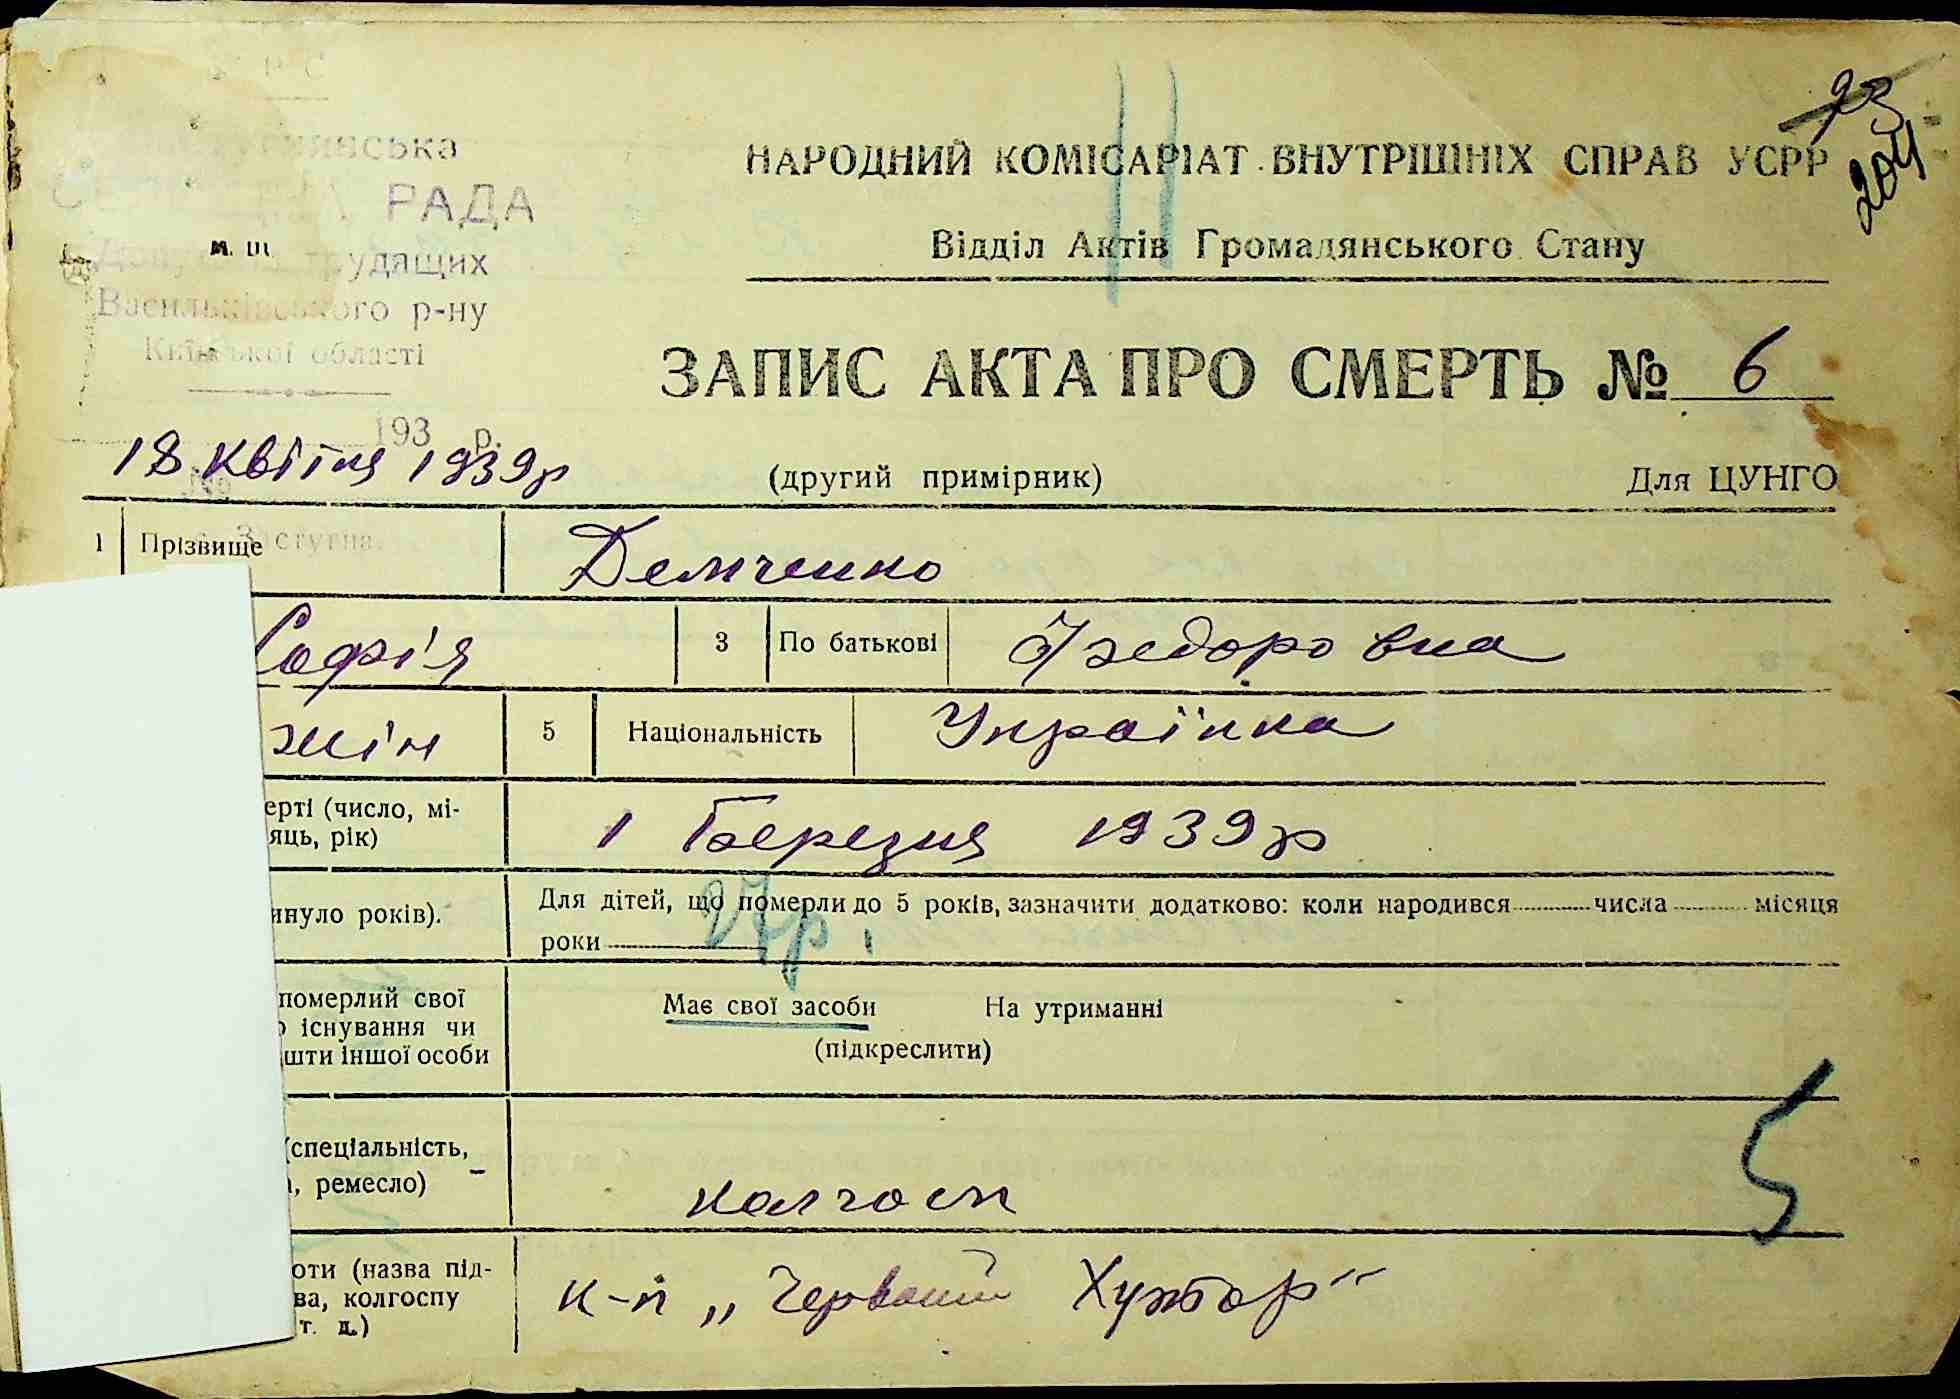 НАРОДНИЙ КОМІСАРІАТ ВНУТРІШНІХ СПРАВ УСРР
Відділ Актів Громадянського Стану
РАДА
м. ш.
трудящих
Васильківського р-ну
Київської області
193 р.
ЗАПИС АКТА ПРО СМЕРТЬ № 6
204
18 квітня 1939р
(другий примірник)
Для ЦУНГО
1 Прізвище Демченко
Софія 3 По батькові Федоровна
жін 5 Національність Українка
ерті (число, мі-
яць, рік)
1 Березня 1939р
инуло років).
Для дітей, що померли до 5 років, зазначити додатково: коли народився числа місяця
роки
27р.
померлий свої
існування чи
шти іншої особи
Має свої засоби На утриманні
(підкреслити)
(спеціальність,
, ремесло)
колгосп
5
оти (назва під-
ва, колгоспу
т. д.)
к-п „Червоний Хутор"